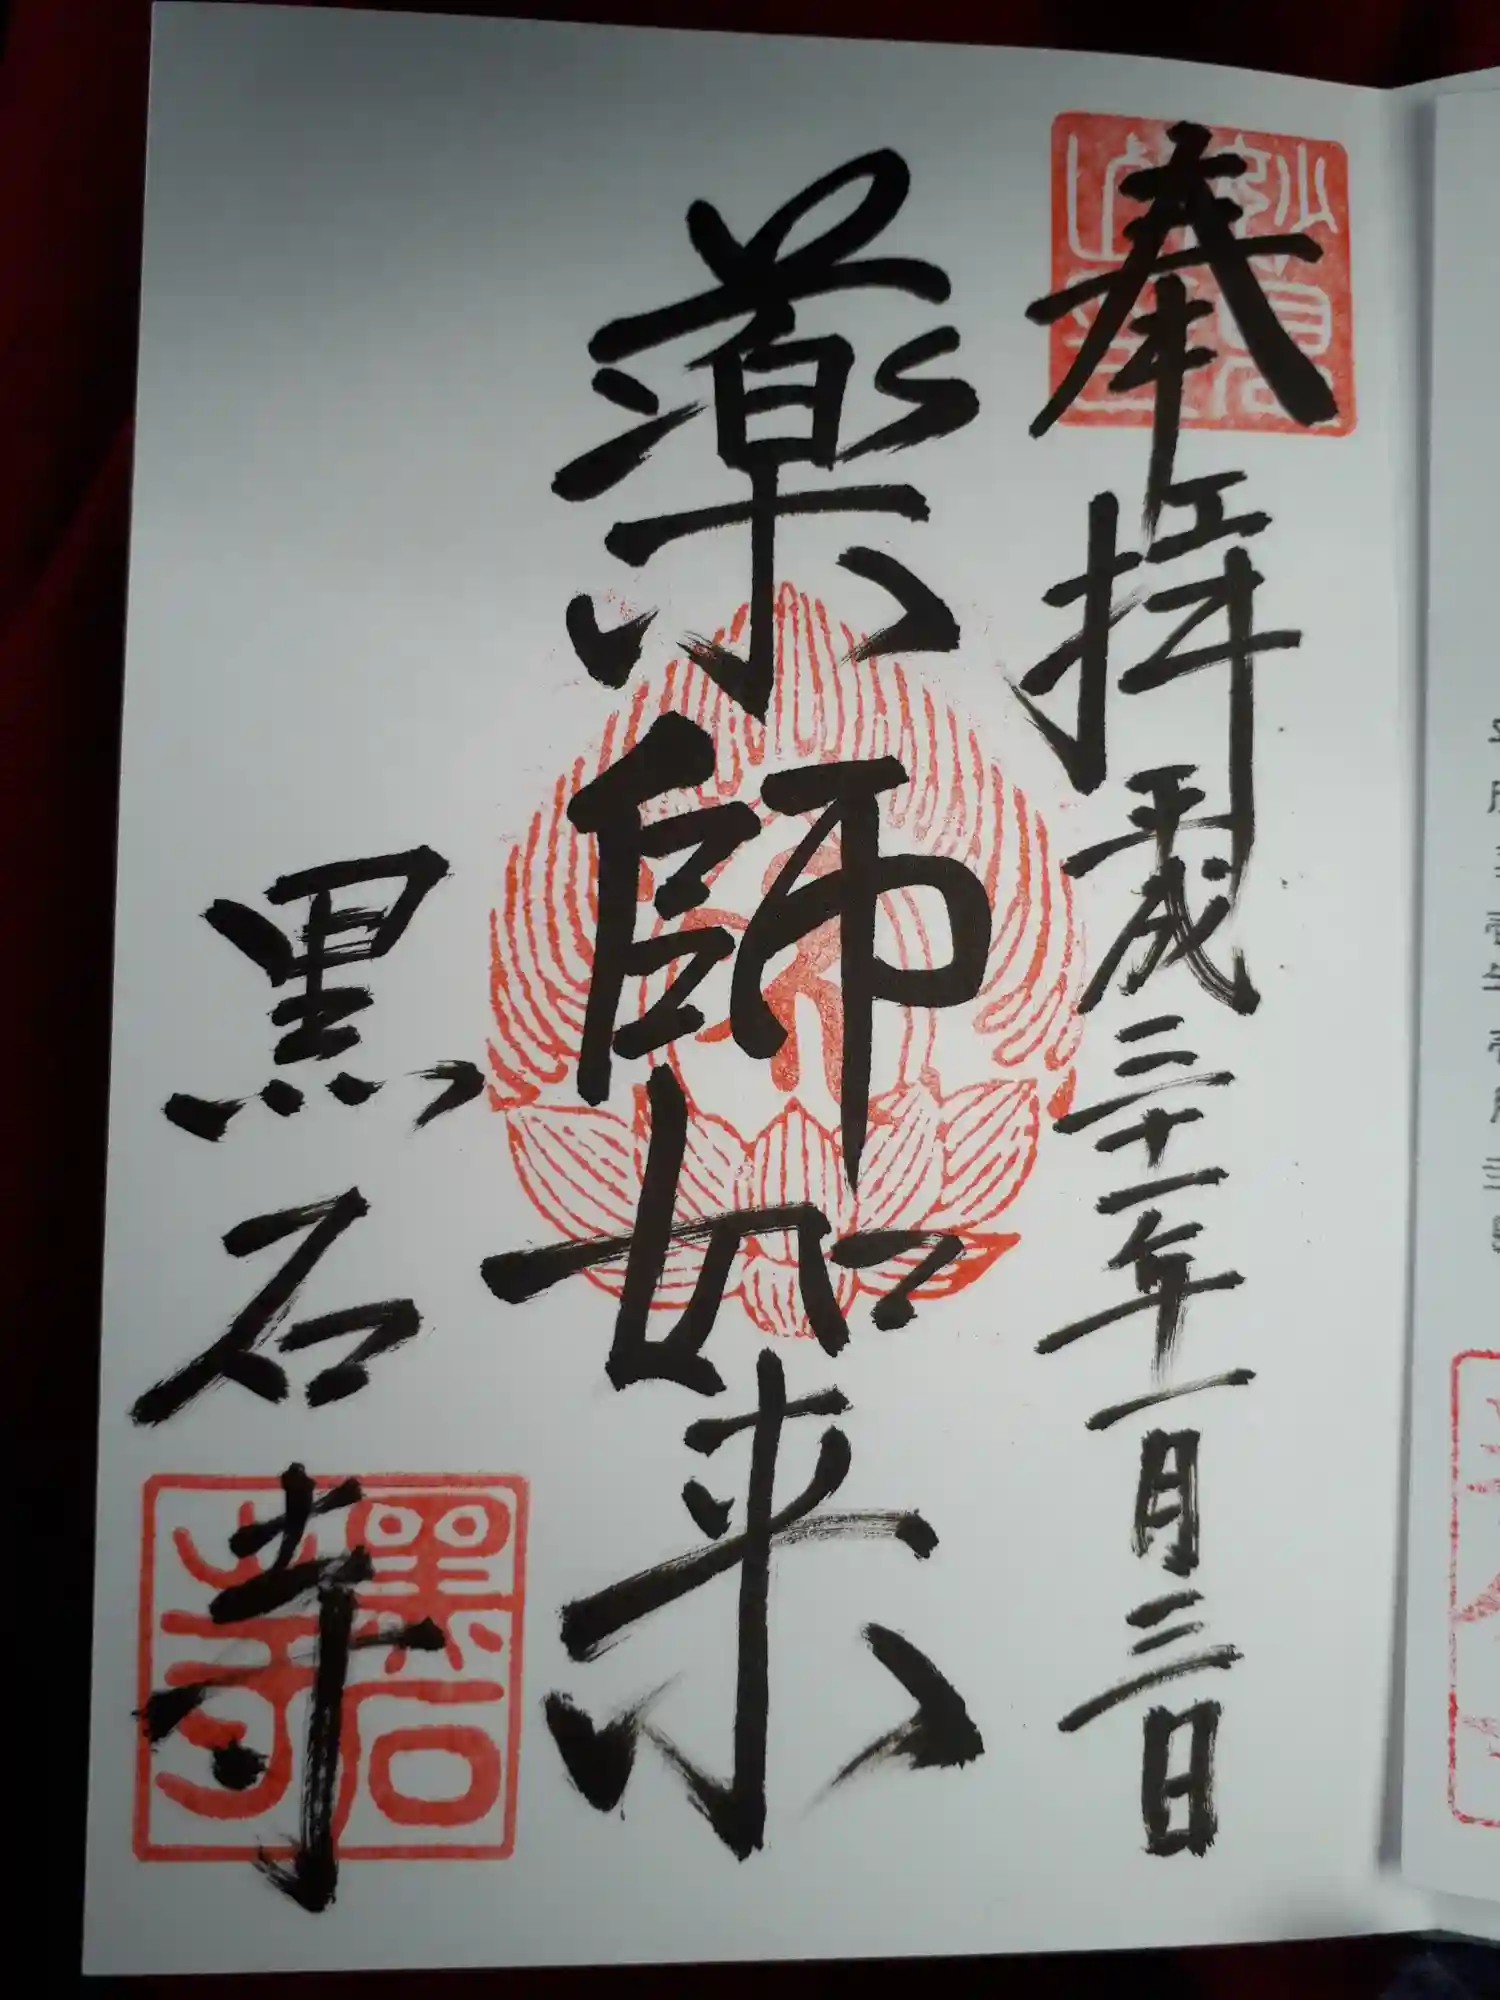 奉拝 平成三十一年一月三日
薬師如来
黒石寺
黒石寺